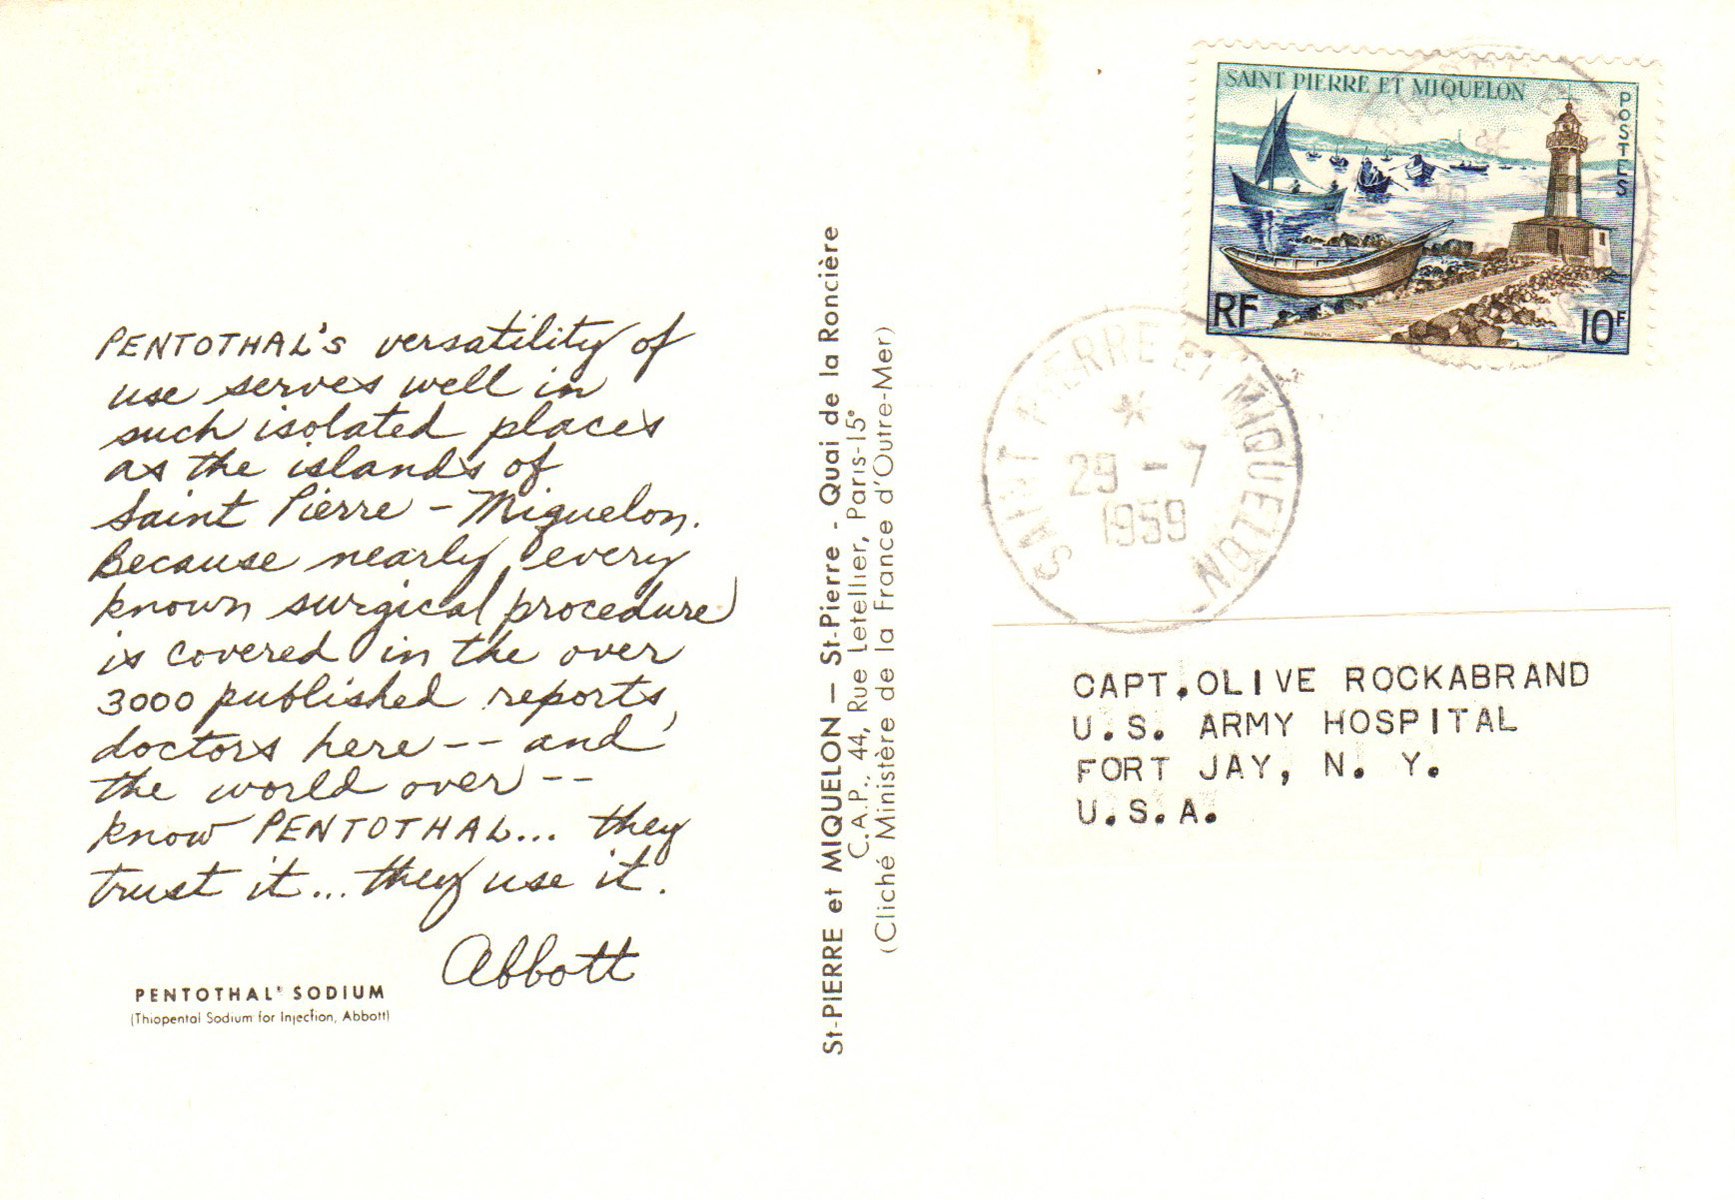 PENTOTHAL's versatility of
use serves well in
such isolated places
as the islands of
Saint Pierre - Miquelon.
Because nearly every
known surgical procedure
is covered in the over
3000 published reports,
doctors here -- and
the world over --
know PENTOTHAL... they
trust it... they use it.
Abbott
PENTOTHAL® SODIUM
(Thiopental Sodium for Injection, Abbott)
St-PIERRE et MIQUELON — St-Pierre - Quai de la Roncière
C.A.P., 44, Rue Letellier, Paris-15°
(Cliché Ministère de la France d'Outre-Mer)
SAINT PIERRE ET MIQUELON
POSTES
RF
10F
SAINT PIERRE ET MIQUELON
29-7
1959
CAPT.OLIVE ROCKABRAND
U.S. ARMY HOSPITAL
FORT JAY, N. Y.
U.S.A.